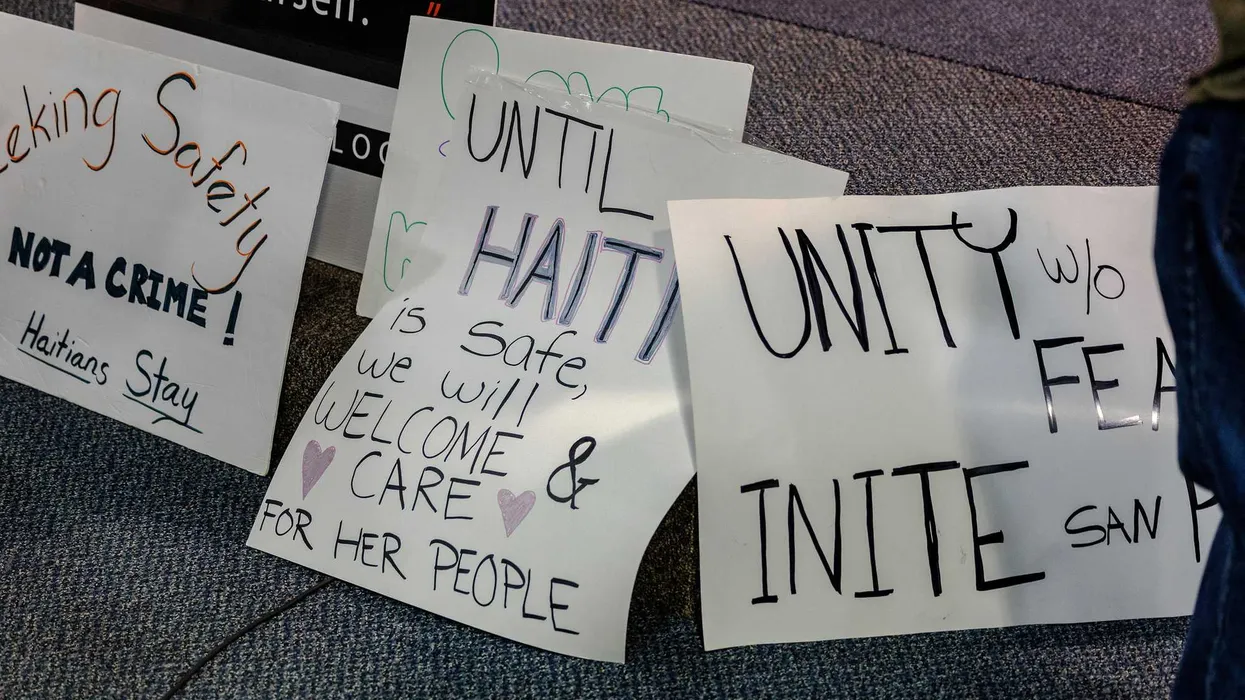 eking Safety
NOT A CRIME!
Haitians Stay
UNTIL
HAITI
is safe,
we will
WELCOME &
CARE
FOR HER PEOPLE
UNITY w/o
FEA
INITE SAN P
rself.”
LOC